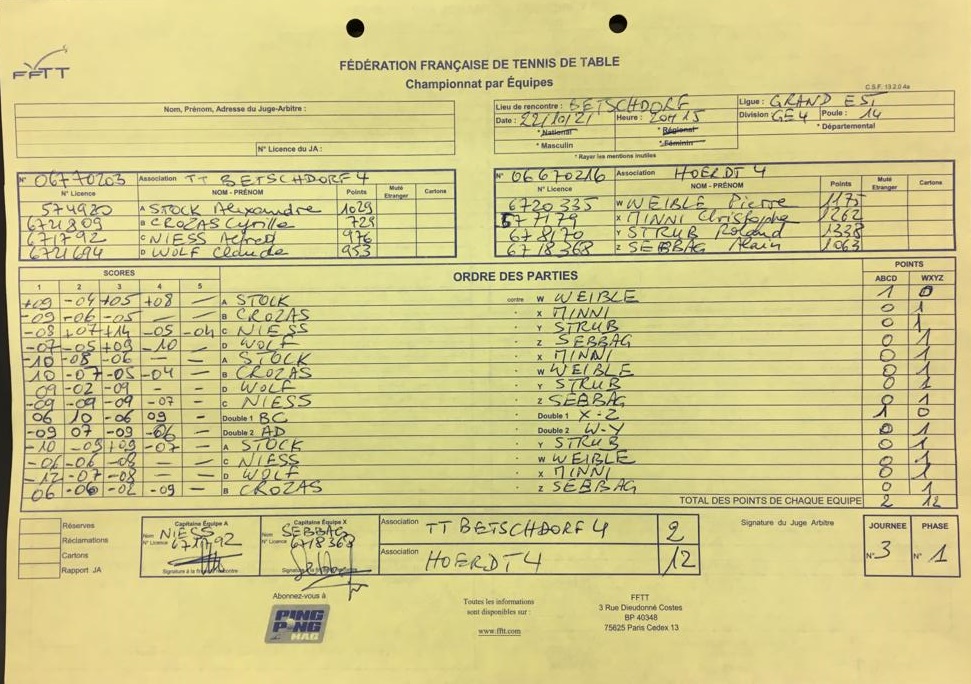 FFTT
FÉDÉRATION FRANÇAISE DE TENNIS DE TABLE
Championnat par Équipes
C.S.F. 13.2.0.4a
Nom, Prénom, Adresse du Juge-Arbitre :
N° Licence du JA :
Lieu de rencontre : BETSCHDORF Ligue : GRAND EST
Date : 22/10/21 Heure : 20H15 Division GE4 Poule : 14
* National * Régional * Départemental
* Masculin * Féminin
* Rayer les mentions inutiles
N° 06770203 Association TT BETSCHDORF 4
N° Licence NOM - PRÉNOM Points Muté Etranger Cartons
574920 A STOCK Alexandre 1029
6721809 B CROZAS Cyrille 729
671792 C NIESS Alfred 976
6721694 D WOLF Claude 953
N° 06670216 Association HOERDT 4
N° Licence NOM - PRÉNOM Points Muté Etranger Cartons
6720335 W WEIBLE Pierre 1175
577179 X MINNI Christophe 1262
678170 Y STRUB Roland 1338
6718368 Z SEBBAG Alain 1063
SCORES ORDRE DES PARTIES POINTS
1 2 3 4 5 ABCD WXYZ
+09 -04 +05 +08 — A STOCK contre W WEIBLE 1 0
-09 -06 -05 — B CROZAS - X MINNI 0 1
-08 +07 +14 -05 -04 C NIESS - Y STRUB 0 1
-07 -05 +09 -10 — D WOLF - Z SEBBAG 0 1
-10 -08 -06 — — A STOCK - X MINNI 0 1
10 -07 -05 -04 — B CROZAS - W WEIBLE 0 1
09 -02 -09 - - D WOLF - Y STRUB 0 1
-09 -09 -09 -07 — C NIESS - Z SEBBAG 0 1
06 10 -06 09 - Double 1 BC - Double 1 X-Z 1 0
-09 07 -09 -06 — Double 2 AD - Double 2 W-Y 0 1
-10 -09 +09 -07 — A STOCK - Y STRUB 0 1
-06 -06 -08 — — C NIESS - W WEIBLE 0 1
-12 -07 -08 — — D WOLF - X MINNI 0 1
06 -06 -02 -09 — B CROZAS - Z SEBBAG 0 1
TOTAL DES POINTS DE CHAQUE EQUIPE 2 12
Réserves
Réclamations
Cartons
Rapport JA
Capitaine Équipe A
Nom NIESS
N° Licence 671792
Capitaine Équipe X
Nom SEBBAG
N° Licence 6718368
Association TT BETSCHDORF 4 2
Association HOERDT 4 12
Signature du Juge Arbitre
JOURNEE PHASE
N° 3 N° 1
Abonnez-vous à
PING PONG MAG
Toutes les informations
sont disponibles sur :
www.fftt.com
FFTT
3 Rue Dieudonné Costes
BP 40348
75625 Paris Cedex 13